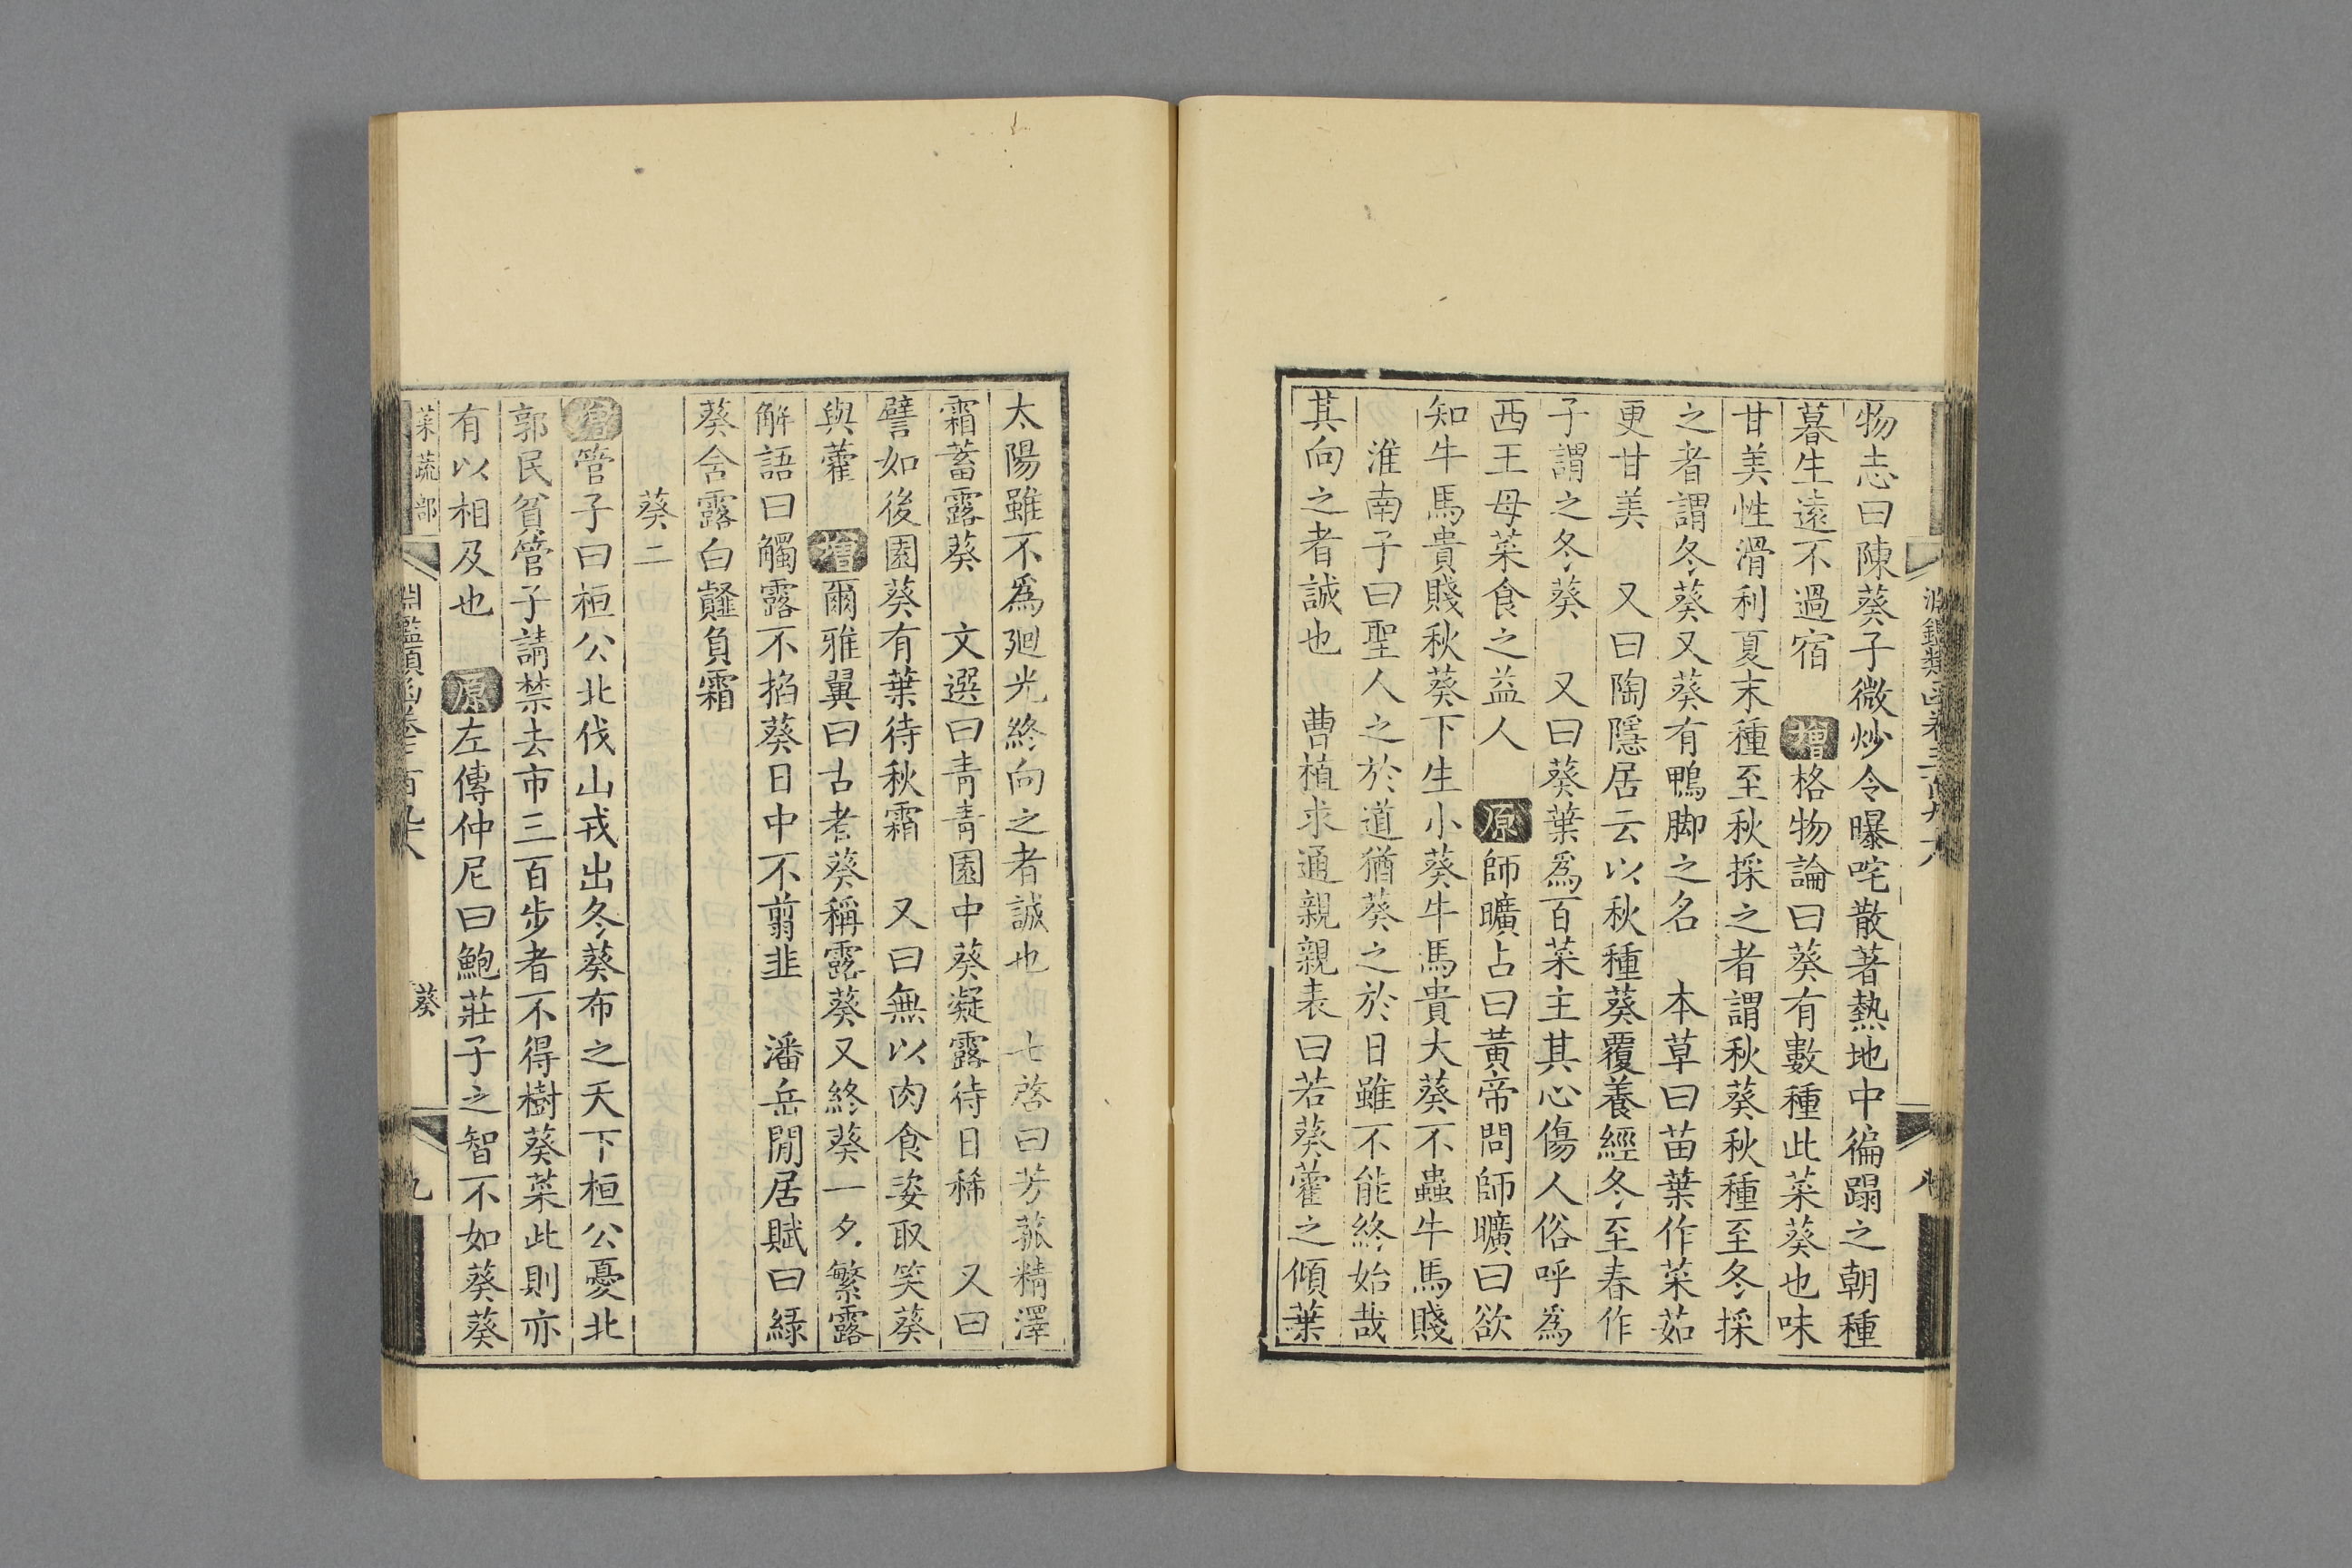 物志曰陳葵子微炒令曝咤散著熱地中徧蹋之朝種
暮生遠不過宿 增格物論曰葵有數種此菜葵也味
甘美性滑利夏末種至秋採之者謂秋葵秋種至冬採
之者謂冬葵又葵有鴨脚之名 本草曰苗葉作菜茹
更甘美 又曰陶隱居云以秋種葵覆養經冬至春作
子謂之冬葵 又曰葵葉爲百菜主其心傷人俗呼爲
西王母菜食之益人 原師曠占曰黃帝問師曠曰欲
知牛馬貴賤秋葵下生小葵牛馬貴大葵不蟲牛馬賤
淮南子曰聖人之於道猶葵之於日雖不能終始哉
其向之者誠也 曹植求通親親表曰若葵藿之傾葉
太陽雖不爲廻光終向之者誠也 七啓曰芳菰精澤
霜蓄露葵 文選曰青青園中葵凝露待日稀 又曰
譬如後園葵有葉待秋霜 又曰無以肉食姿取笑葵
與藿 增爾雅翼曰古者葵稱露葵又終葵一名繁露
解語曰觸露不掐葵日中不翦韭 潘岳閒居賦曰綠
葵含露白薤負霜
葵二
增管子曰桓公北伐山戎出冬葵布之天下桓公憂北
郭民貧管子請禁去市三百步者不得樹葵菜此則亦
有以相及也 原左傳仲尼曰鮑莊子之智不如葵葵
菜蔬部
葵
九